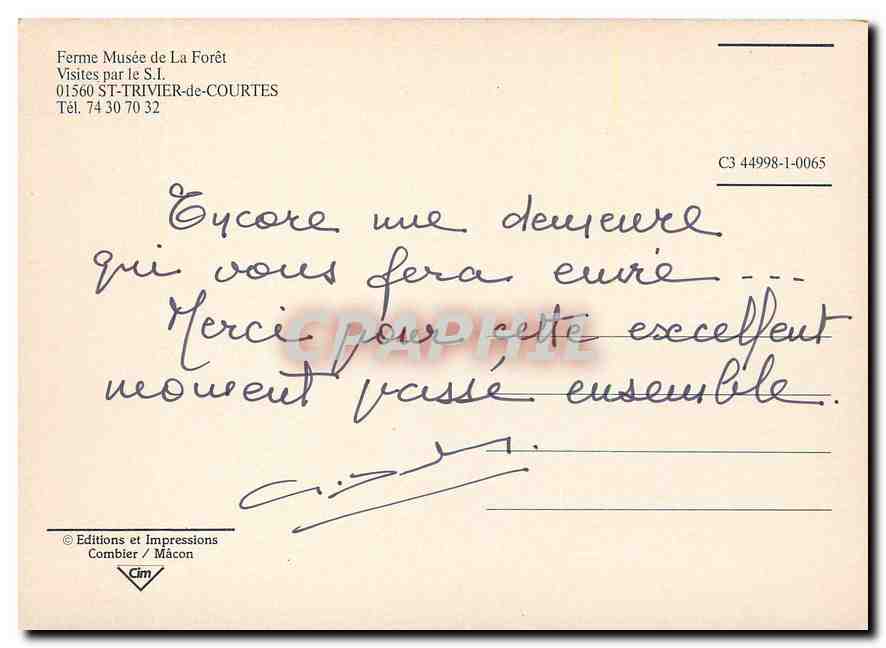 Ferme Musée de La Forêt
Visites par le S.I.
01560 ST-TRIVIER-de-COURTES
Tél. 74 30 70 32
C3 44998-1-0065
Encore une demeure
qui vous fera envie ...
Merci pour cette excellent
moment passé ensemble.
CPAPHIL
© Editions et Impressions
Combier / Mâcon
Cim